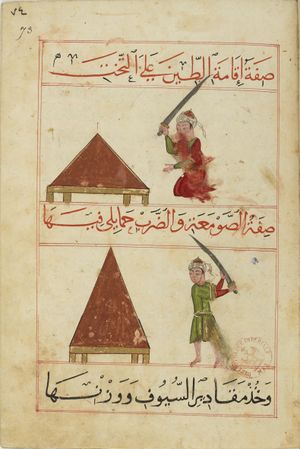 73
صفة إقامة الطين على التخت
صفة الصومعة والضرب حمايلي فيها
وخذ مقادير السيوف ووزنها